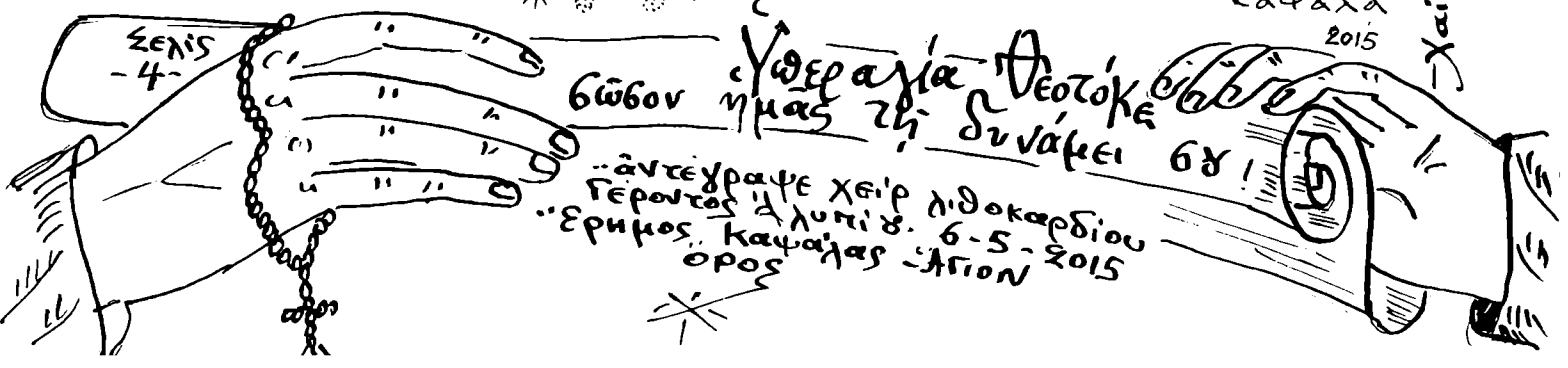 Σελίς
-4-
Ὑπεραγία Θεοτόκε
σῶσον ἡμᾶς τῇ δυνάμει σȣ!
ἀντέγραψε χείρ λιθοκαρδίου
Γέροντος Ἀλυπίȣ. 6-5-2015
Ἔρημος Καψάλας - Ἅγιον
Ὄρος
2015